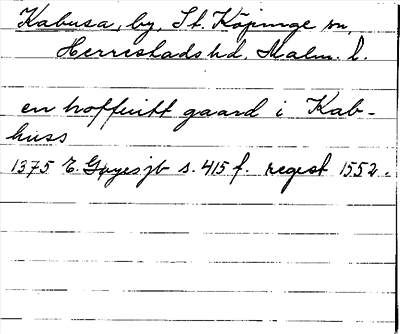 Kabusa, by, St. Köpinge sn,
Herrestads hd, Malm. l.
en hoffuitt gaard i Kab-
huss
1375 E. Gøyes jb s. 415 f. regest 1552.